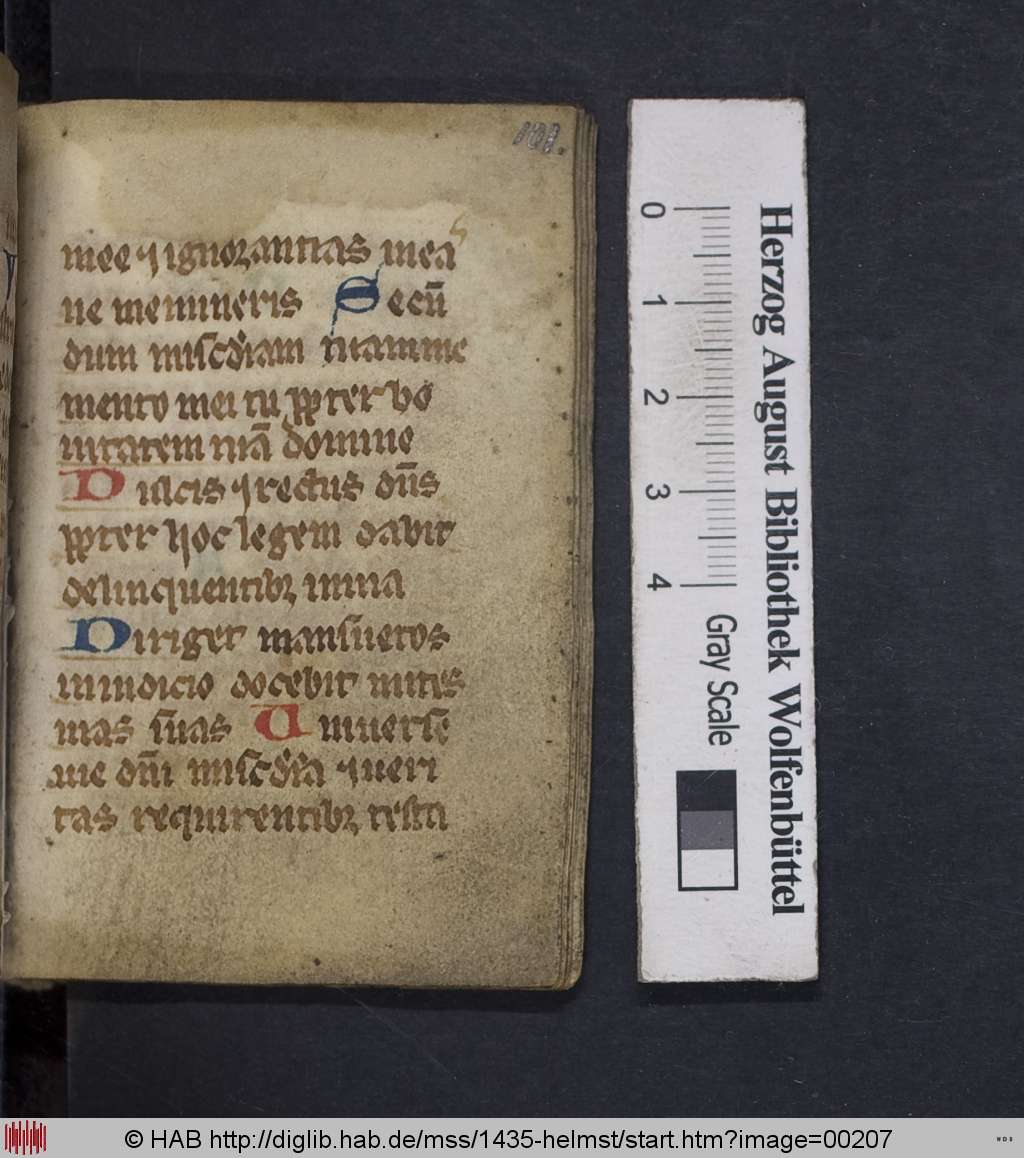 101.
mee ⁊ ignorantias meas
ne memineris Secū
dum misc̄diam tuam me
mento mei tu ꝓpter bo
nitatem tuā domine
Dulcis ⁊ rectus dn̄s
ꝓpter hoc legem dabit
delinquentibꝫ in uia
Diriget mansuetos
in iudicio docebit mites
uias suas Uniuerse
uie dn̄i misc̄dia ⁊ ueri
tas requirentibꝫ testa
Herzog August Bibliothek Wolfenbüttel
0 1 2 3 4
Gray Scale
© HAB http://diglib.hab.de/mss/1435-helmst/start.htm?image=00207